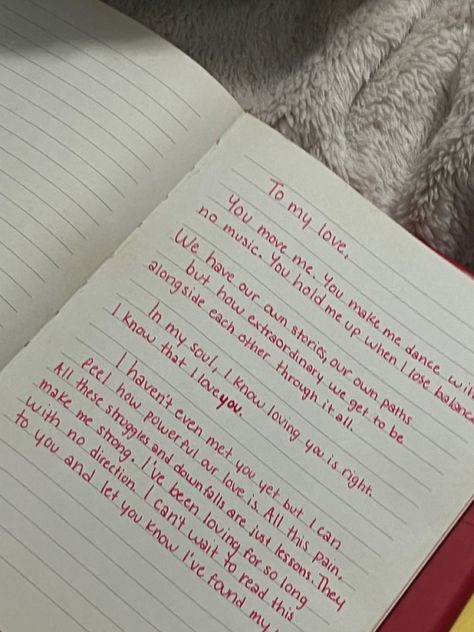 To my love,
You move me. You make me dance
no music. You hold me up when I lose
We have our own stories, our own paths
but how extraordinary we get to be
alongside each other through it all.
In my soul, I know loving you is right.
I know that I love you.
I haven't even met you yet but I can
feel how powerful our love is. All this pain,
All these struggles and downfalls are just lessons. They
make me strong. I've been loving for so long
with no direction. I can't wait to read this
to you and let you know I've found my